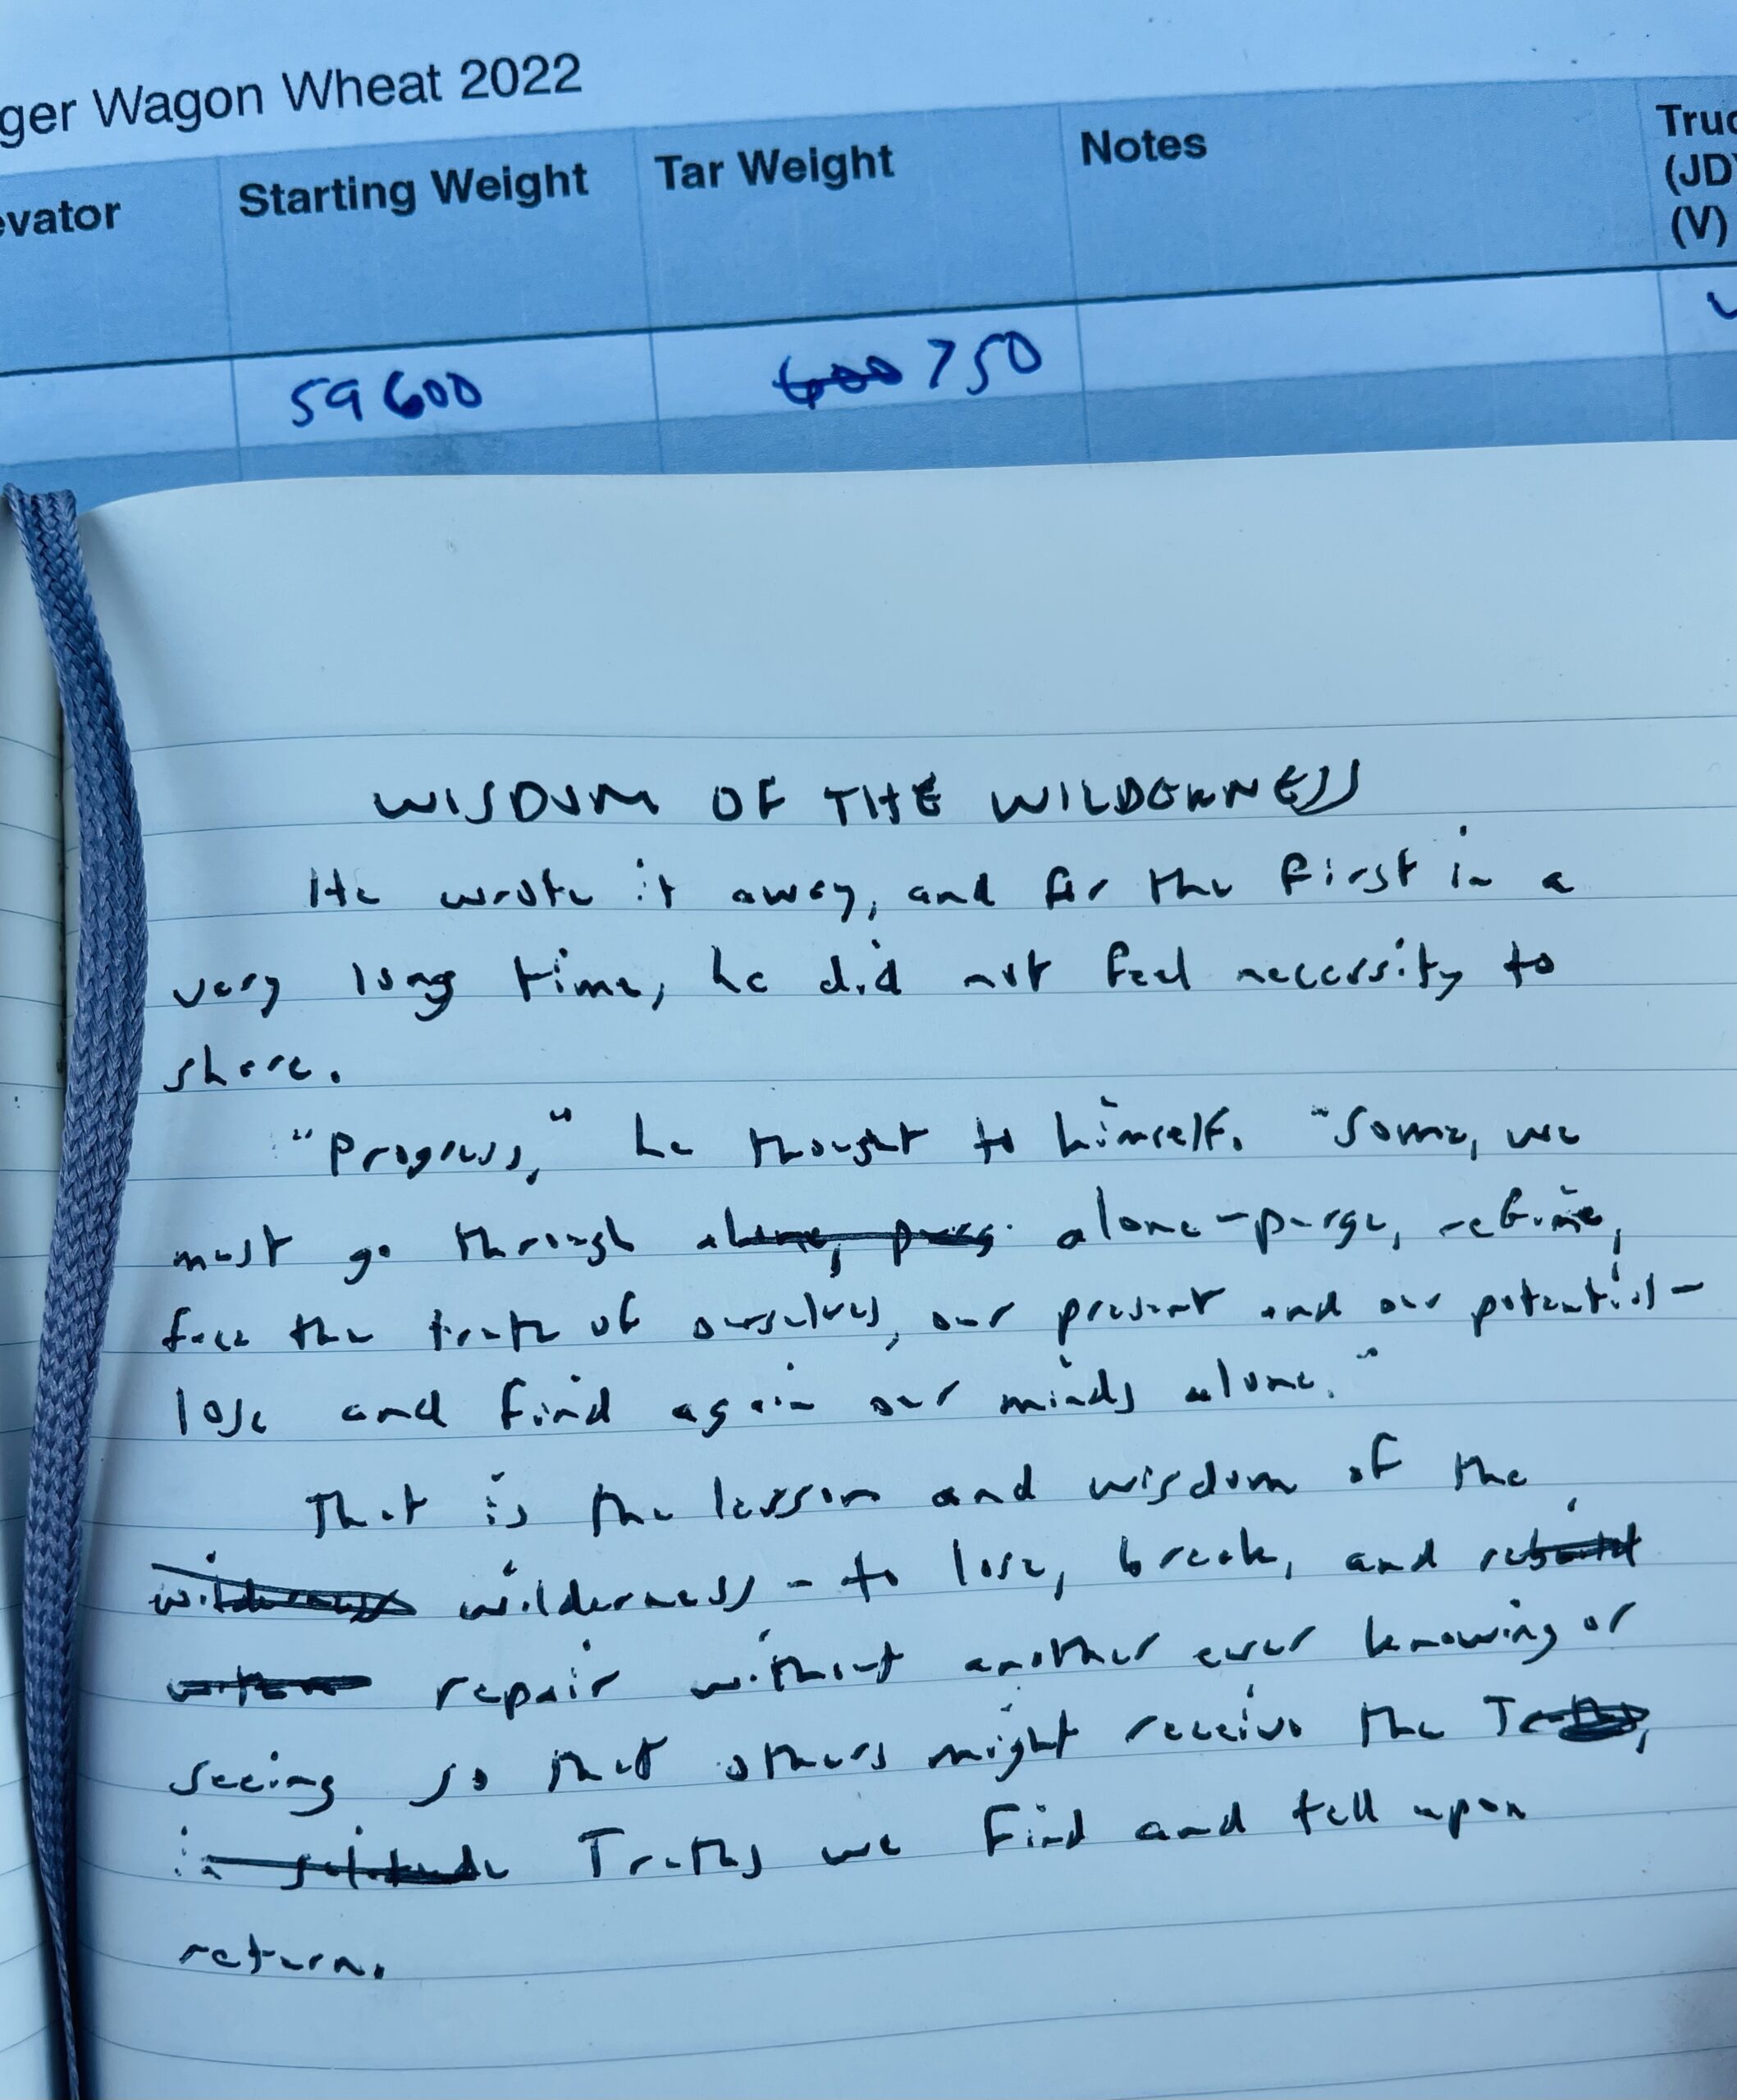 ger Wagon Wheat 2022
evator Starting Weight Tar Weight Notes Truc
(JD)
(V)
59600 600 750
WISDOM OF THE WILDERNESS
He wrote it away, and for the first in a
very long time, he did not feel necessity to
share.
"Progress," he thought to himself. "Some, we
must go through alone, purg alone - purge, refine,
face the truth of ourselves, our present and our potential -
lose and find again our minds alone."
That is the lesson and wisdom of the
wilderness wilderness - to lose, break, and rebuild
repair without another ever knowing or
seeing so that others might receive the
in solitude Truths we find and tell upon
return.